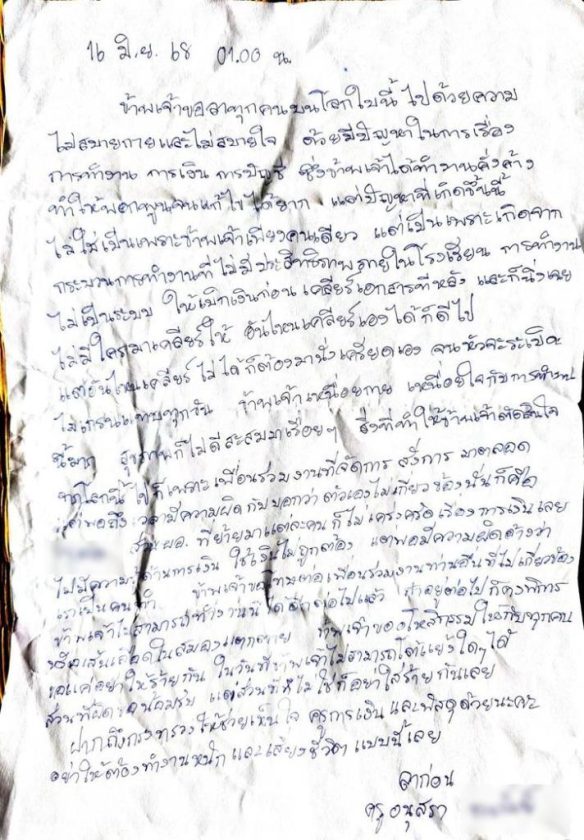 16 มิ.ย. 68 01.00 น.
ข้าพเจ้าขอลาทุกคนบนโลกใบนี้ ไปด้วยความ
ไม่สบายกายและไม่สบายใจ ด้วยมีปัญหาในการเรื่อง
การทำงาน การเงิน การบัญชี ซึ่งข้าพเจ้าได้ทำงานคั่งค้าง
ทำให้พอกพูนจนแก้ไขได้ยาก แต่ปัญหาที่เกิดขึ้นนี้
ไม่ใช่เป็นเพราะข้าพเจ้าเพียงคนเดียว แต่เป็นเพราะเกิดจาก
กระบวนการทำงานที่ไม่มีประสิทธิภาพภายในโรงเรียน การทำงาน
ไม่เป็นระบบ ให้เบิกเงินก่อน เคลียร์เอกสารทีหลัง และก็นิ่งเฉย
ไม่มีใครมาเคลียร์ให้ อันไหนเคลียร์เองได้ก็ดีไป
แต่อันไหนเคลียร์ไม่ได้ก็ต้องมานั่งเครียดเอง จนหัวจะระเบิด
ไมเกรนแทบทุกวัน ข้าพเจ้าเหนื่อยกาย เหนื่อยใจกับการทำงาน
นี้มาก สุขภาพก็ไม่ดีสะสมมาเรื่อยๆ สิ่งที่ทำให้ข้าพเจ้าตัดสินใจ
จากโลกนี้ไปก็เพราะเพื่อนร่วมงานที่จัดการ สั่งการ มาตลอด
แต่พอถึงเวลามีความผิดกับบอกว่า ตัวเองไม่เกี่ยวข้องนั่นก็คือ
ส่วน ผอ. ที่ย้ายมาแต่ละคนก็ไม่เคร่งครัดเรื่องการเงินเลย
ไม่มีความ ด้านการเงิน ใช้เงินไม่ถูกต้อง แต่พอมีความผิดอ้างว่า
เราเป็นคนทำ ข้าพเจ้าขอ ต่อเพื่อนร่วมงานท่านอื่นที่ไม่เกี่ยวข้อง
ข้าพเจ้าไม่สามารถทำงานนี้ได้อีกต่อไปแล้ว ถ้าอยู่ต่อไปก็คงพิการ
หรือเส้นเลือดในสมองแตกตาย ข้าพเจ้าขออโหสิกรรมให้กับทุกคน
ขอแค่อย่าให้ร้ายกัน ในวันที่ข้าพเจ้าไม่สามารถโต้แย้งใดๆ ได้
ส่วนที่ผิดขอน้อมรับ แต่ส่วนที่ไม่ใช่ก็อย่าใส่ร้ายกันเลย
ฝากถึงกระทรวงให้ช่วยเห็นใจ ครูการเงิน และพัสดุด้วยนะคะ
อย่าให้ต้องทำงานหนัก และเสี่ยงชีวิต แบบนี้เลย
ลาก่อน
ครู อนุสรา